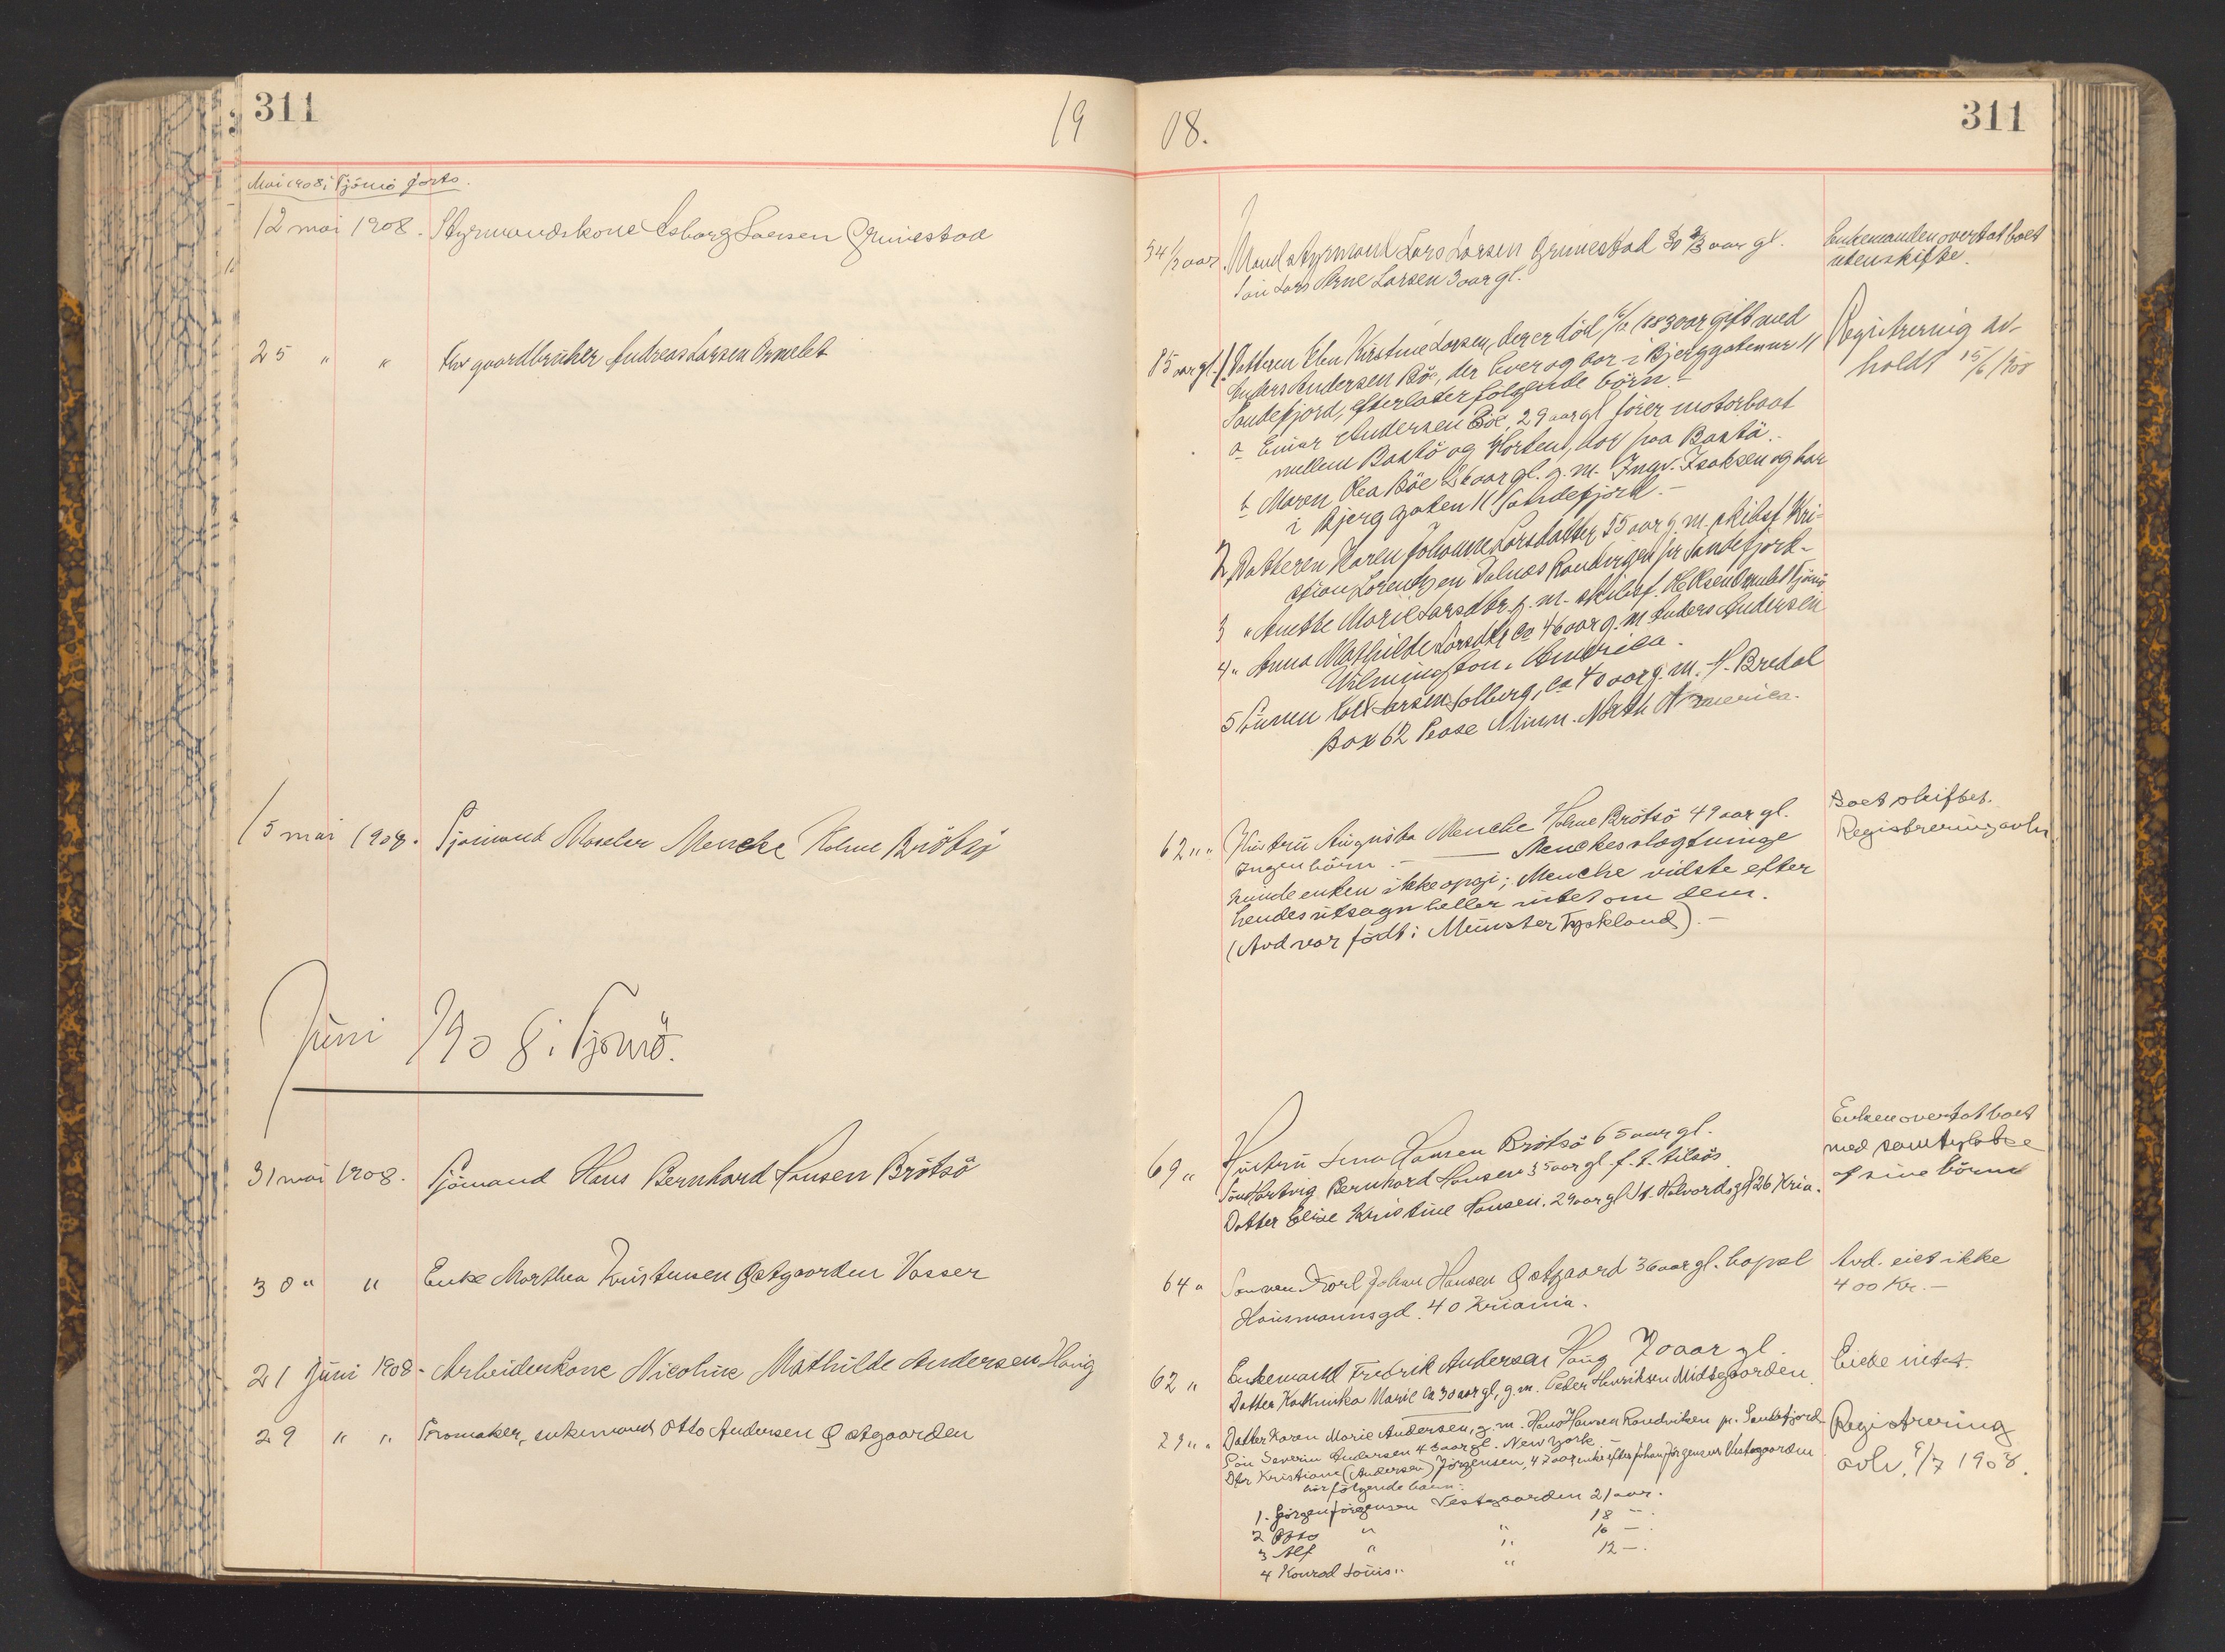 311
19
08.
311
Mai 1908 i Tjömö forts.
12 mai 1908. Styrmandskone Asborg Larsen Grimestad
34 1/2 aar. Mand styrmand Lars Larsen Grimestad aar gl.
Sön Lars Arne Larsen 3 aar gl.
Enkemanden overtat boet
uten skifte.
25 " " Fhv gaardbruker Andreas Larsen Ormelet
85 aar gl. 1. Datteren Elen Kirstine Larsen, der er död 1883 var gift med
Anders Andersen Böe, der lever og bor i Bjerggaten nr 11
Sandefjord, efterlater fölgende börn:
a Einar Andersen Böe, 29 aar gl förer motorbaat
mellem Bastö og Horten, bor paa Bastö.
b Maren Olea Böe 26 aar gl. g. m. Ingv. Isaksen og bor
i Bjerggaten 11 Sandefjord.
2 Datteren Karen Johanne Larsdatter 55 aar g. m. skibsf. Kri-
stian Lorentzen Dalnæs Randvigen pr Sandefjord.
3 " Anette Marie Larsdtr. g. m. skibsf. Ormelet Tjömö
4 " Anna Mathilde Larsdtr ca 46 aar g. m. Anders Andersen
Wilmington, America.
5 Sönnen Larsen Solberg, ca 40 aar g. m. H. Bredal
Box 62 Pease Minn. North America.
Registrering av-
holdt 15/6 1908
15 mai 1908. Sjömand Mencke Holme Brötsö
62 " " Hustru Augusta Mencke Holme Brötsö 49 aar gl.
Ingen börn. — Menckes slægtninge
kunde enken ikke opgi; Mencke vidste efter
hendes utsagn heller intet om dem.
(Avd var födt i Münster Tyskland).
Boet skiftet.
Registrering avh
Juni 1908 i Tjömö.
31 mai 1908. Sjömand Hans Bernhard Hansen Brötsö
69 " Hustru Lena Hansen Brötsö 65 aar gl.
Sön Hartvig Bernhard Hansen 35 aar gl. f. t. tilsös
Datter Elise Kristine Hansen. 29 aar gl St. Halvordsgd 26 Kria.
Enken overtat boet
med samtykke
af sine börn
30 " " Enke Marthea Kristensen Østgaarden Vasser
64 " Sønnen Karl Johan Hansen Østgaard 36 aar gl. bopæl
Hausmannsgd. 40 Kristiania.
Avd. eiet ikke
400 Kr.
21 Juni 1908. Arbeiderkone Nicoline Mathilde Andersen Haug
62 " Enkemand Fredrik Andersen Haug 70 aar gl.
Datter Kathinka Marie ca 30 aar gl, g. m. Peder Henriksen Midtgaarden.
Eiede intet.
29 " " Skomaker, enkemand Otto Andersen Østgaarden
79 " " Datter Karen Marie Andersen, g. m. Hans Hansen Randviken pr. Sandefjord
Sön Severin Andersen 43 aar gl. New York
Dtr Kristiane (Andersen) Jörgensen, 47 aar, enke efter Johan Jörgensen Vestgaarden
har fölgende barn:
1. Jörgen Jörgensen Vestgaarden 21 aar.
2 Otto " " 18 — .
3 Alf " " 16 — .
4 Konrad Louis " " 12 — .
Registrering
avh. 9/7 1908.